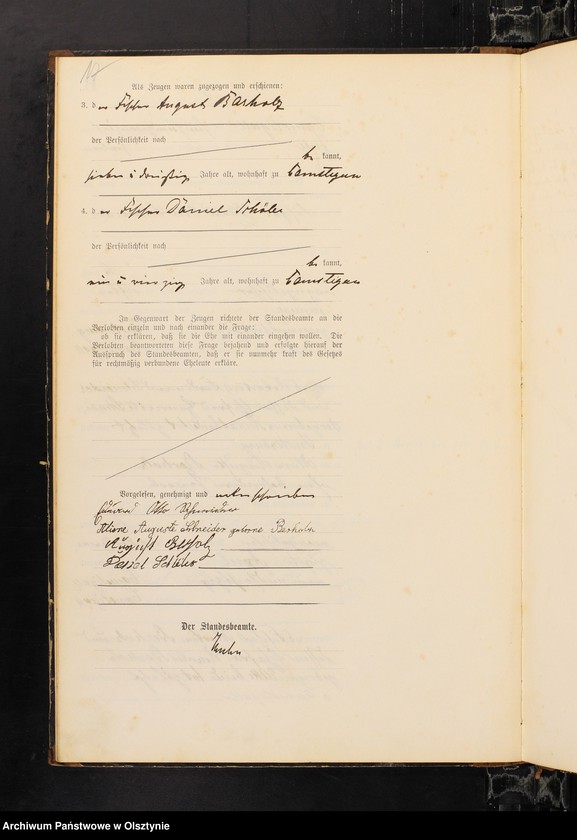 Als Zeugen waren zugezogen und erschienen:
3. der Fischer August Barholz
der Persönlichkeit nach
be kannt,
sieben u dreißig Jahre alt, wohnhaft zu
4. der Fischer Daniel Schüler
der Persönlichkeit nach
be kannt,
neun u vierzig Jahre alt, wohnhaft zu
In Gegenwart der Zeugen richtete der Standesbeamte an die
Verlobten einzeln und nach einander die Frage:
ob sie erklären, daß sie die Ehe mit einander eingehen wollen. Die
Verlobten beantworteten diese Frage bejahend und erfolgte hierauf der
Ausspruch des Standesbeamten, daß er sie nunmehr kraft des Gesetzes
für rechtmäßig verbundene Eheleute erkläre.
Vorgelesen, genehmigt und unterschrieben
Otto
Auguste Schneider geborne Barholz
August
Schüler
Der Standesbeamte.
Archiwum Państwowe w Olsztynie